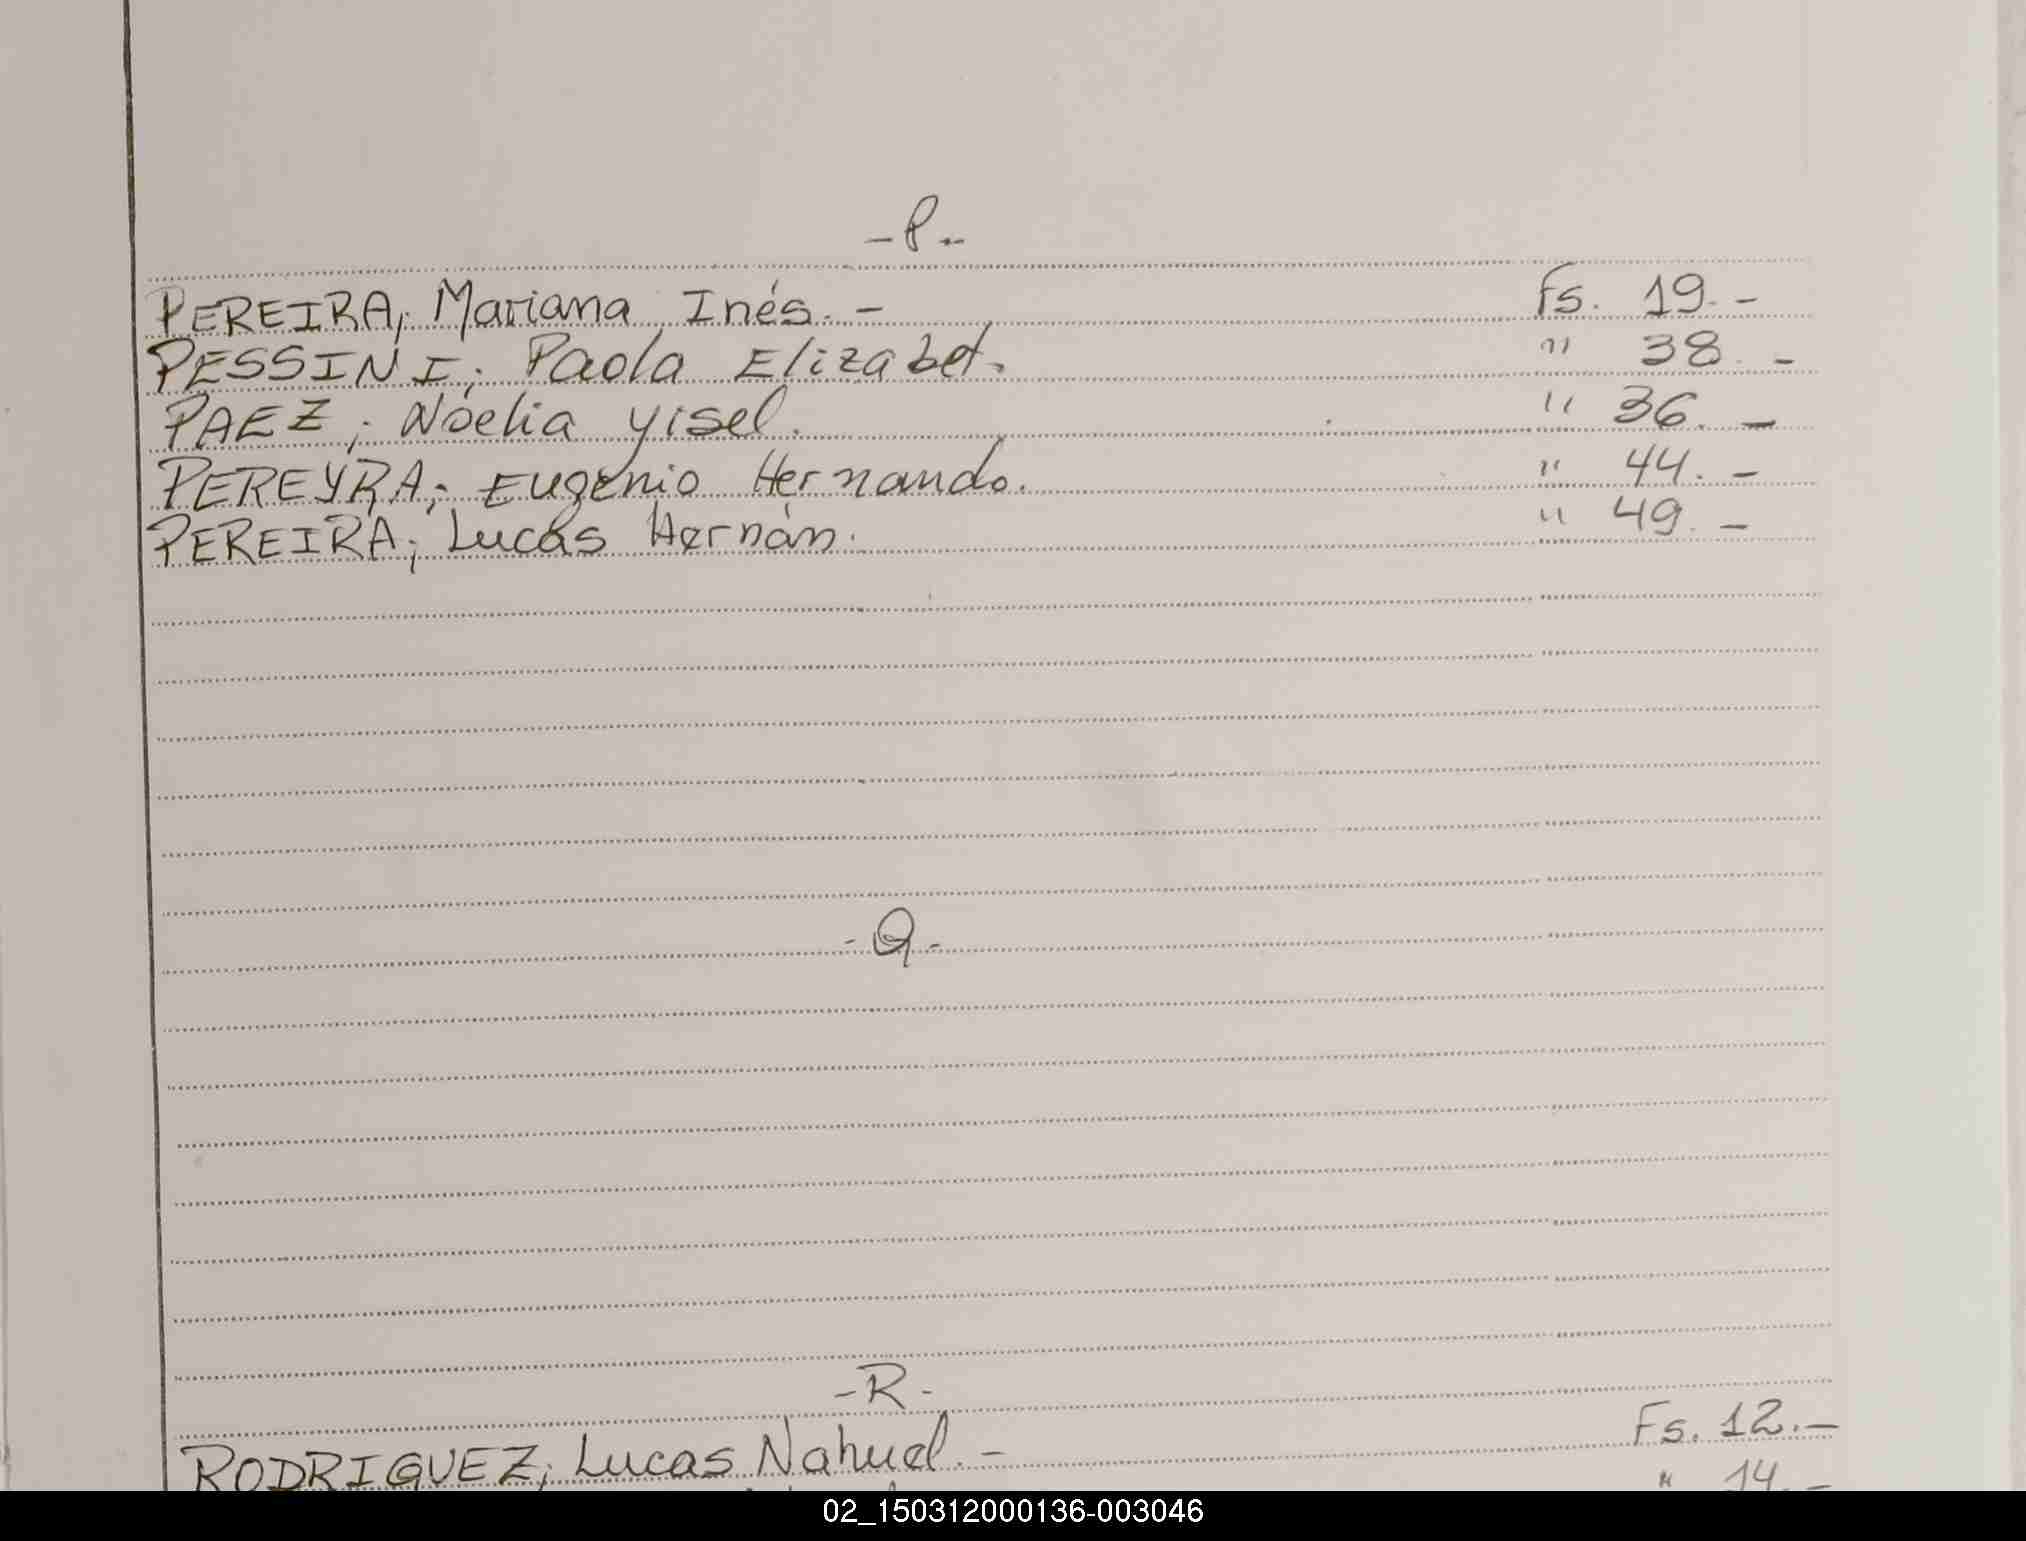 -P-
PEREIRA, Mariana Inés. - Fs. 19. -
PESSINI, Paola Elizabet. " 38. -
PAEZ, Noelia Yisel. " 36. -
PEREYRA, Eugenio Hernando. " 44. -
PEREIRA, Lucas Hernán. " 49. -
-Q-
-R-
RODRIGUEZ, Lucas Nahuel. - Fs. 12. -
" 14. -
02_150312000136-003046